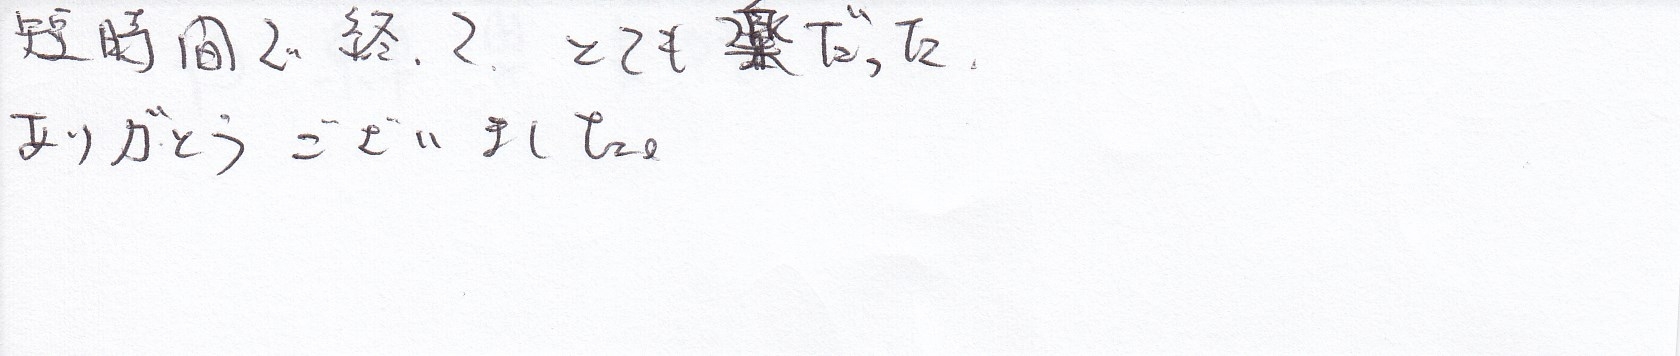 短時間で終って とても楽だった.
ありがとうございました。